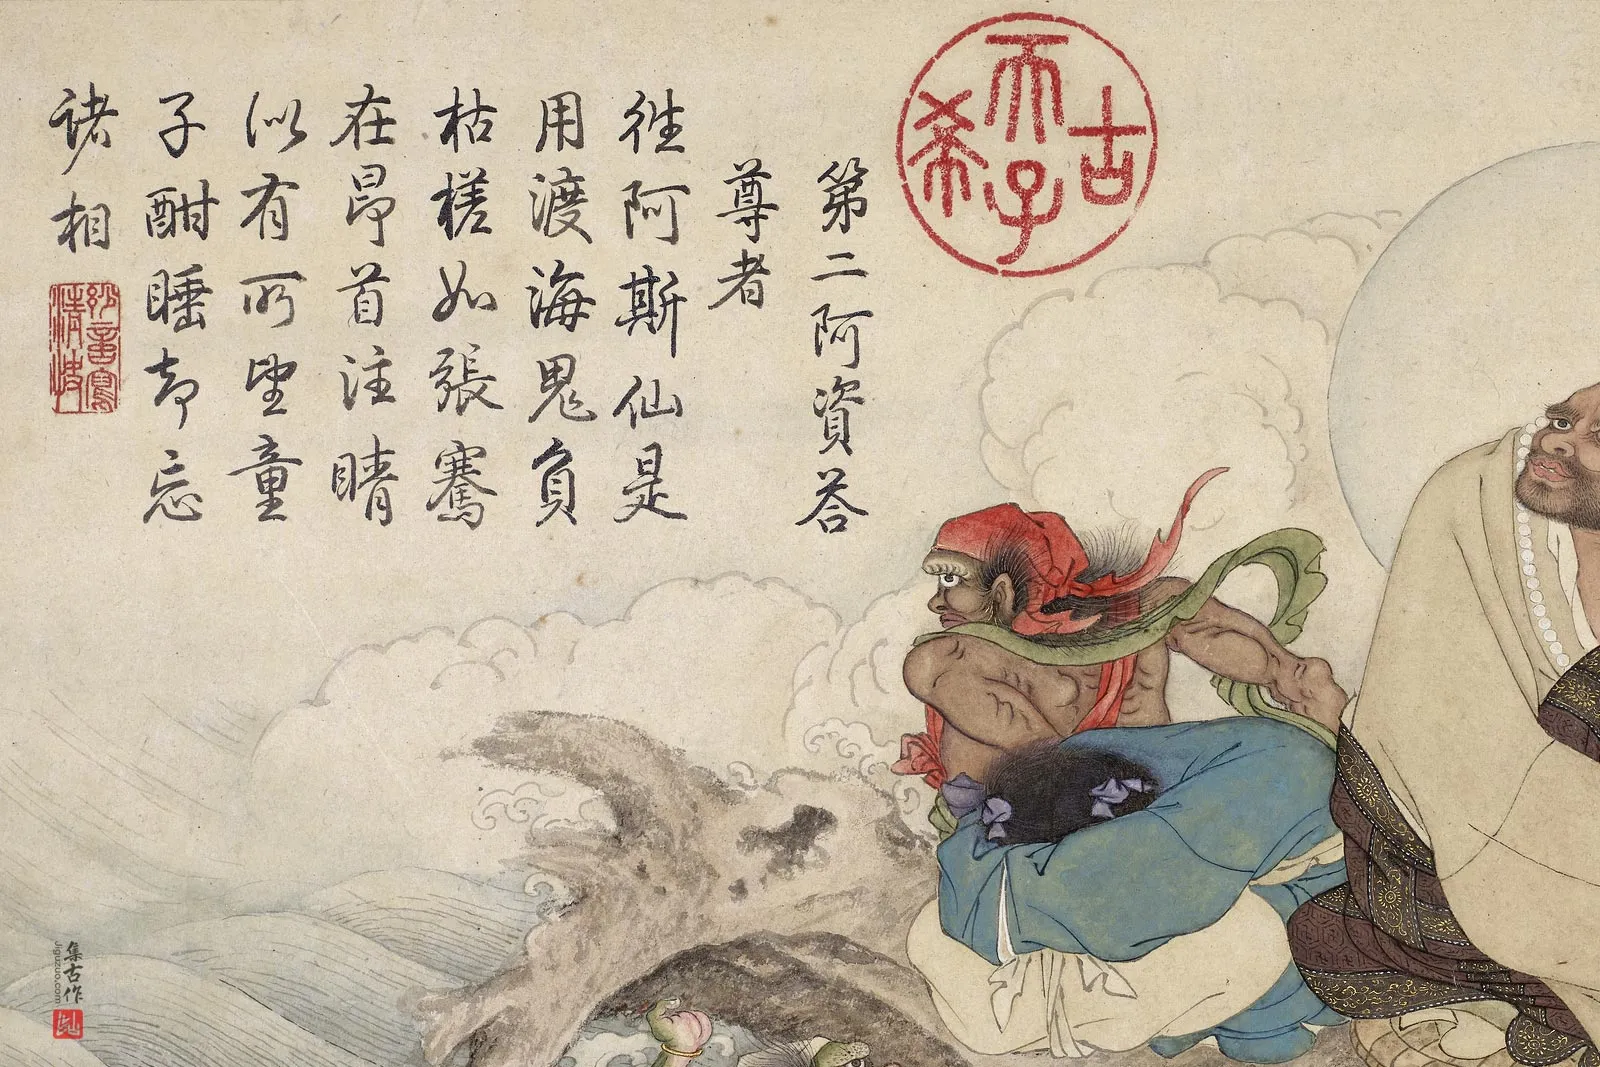 古希天子
第二阿資荅
尊者
徃阿斯仙是
用渡海鬼負
枯槎如張騫
在昂首注睛
似有所望童
子酣睡却忘
諸相
妙意寫清快
集古作
jiguzuo.com